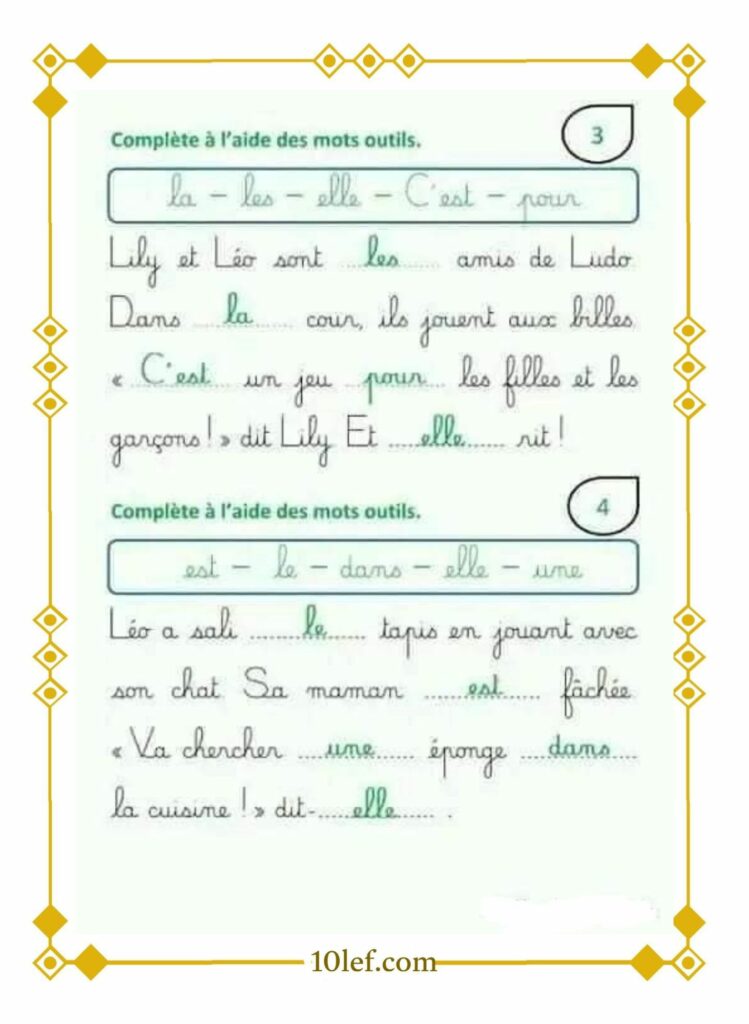 Complète à l'aide des mots outils.
3
la – les – elle – C'est – pour
Lily et Léo sont ...les... amis de Ludo
Dans ...la... cour, ils jouent aux billes
« C'est un jeu pour les filles et les
garçons ! » dit Lily Et ...elle... rit !
Complète à l'aide des mots outils.
4
est – le – dans – elle – une
Léo a sali ...le... tapis en jouant avec
son chat Sa maman ...est... fâchée
« Va chercher ...une... éponge ...dans...
la cuisine ! » dit-...elle... .
10lef.com